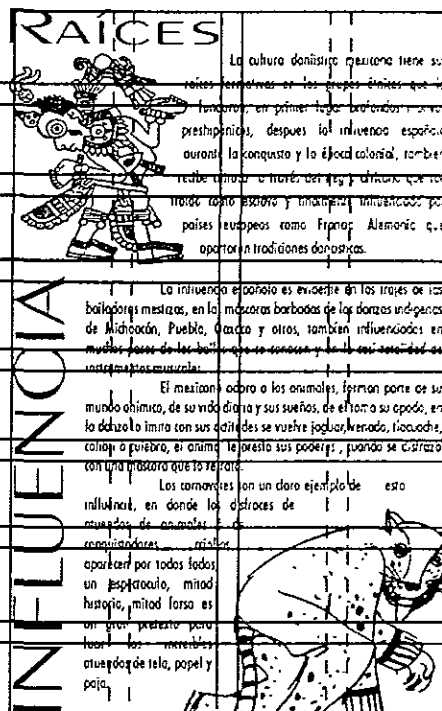 RAÍCES
La cultura dancística mexicana tiene su
raíces formativas en los grupos étnicos que la
fundaron, en primer lugar
preshipánicos, despues la influencia española
durante la conquista y la época colonial, tambien
recibe a través del negro africano que
traido como esclavo y finalmente influenciado por
países europeos como Francia Alemania que
aportaron tradiciones dancísticas.
INFLUENCIA
La influencia española es evidente en los trajes de los
bailadores mestizos, en las máscaras barbadas de las danzas indígenas
de Michoacán, Puebla, Oaxaca y otros, tambien influenciados en
muchos pasos de los bailes que se conocen y en la casi totalidad de
instrumentos musicales.
El mexicano adora a los animales, forman parte de su
mundo onímico, de su vida diaria y sus sueños, de el toma su apodo, en
la danza lo imita con sus actitudes se vuelve jaguar, venado, tlacuache,
o culebra, el animal le presta sus poderes, cuando se disfraza
con una máscara que lo retrata.
Los carnavales son un claro ejemplo de esta
influencia, en donde los disfraces de
atuendos de animales
conquistadores criollos
aparecen por todos lados,
un espectaculo, mitad
historia, mitad farsa es
un gran pretexto para
lucir los increíbles
atuendos de tela, papel y
paja.